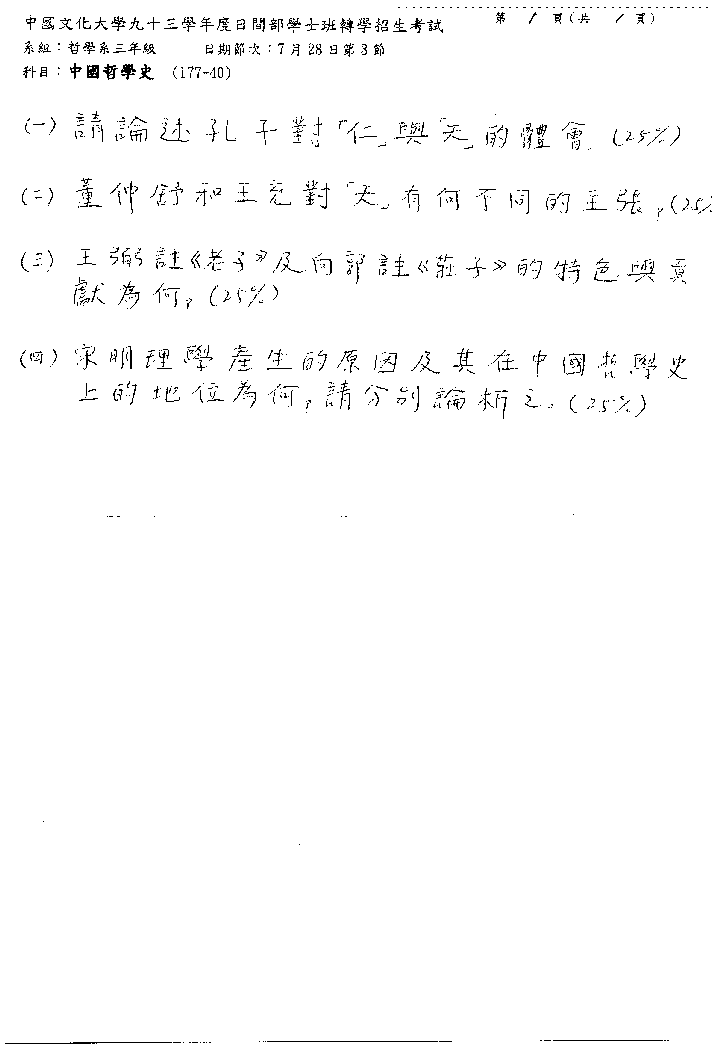 中國文化大學九十三學年度日間部學士班轉學招生考試 第 1 頁(共 1 頁)
系組：哲學系三年級 日期節次：7月28日第3節
科目：中國哲學史 (177-40)
(一) 請論述孔子對「仁」與「天」的體會. (25%)
(二) 董仲舒和王充對「天」有何不同的主張? (25%
(三) 王弼註《老子》及向郭註《莊子》的特色與貢
獻為何? (25%)
(四) 宋明理學產生的原因及其在中國哲學史
上的地位為何? 請分別論析之. (25%)